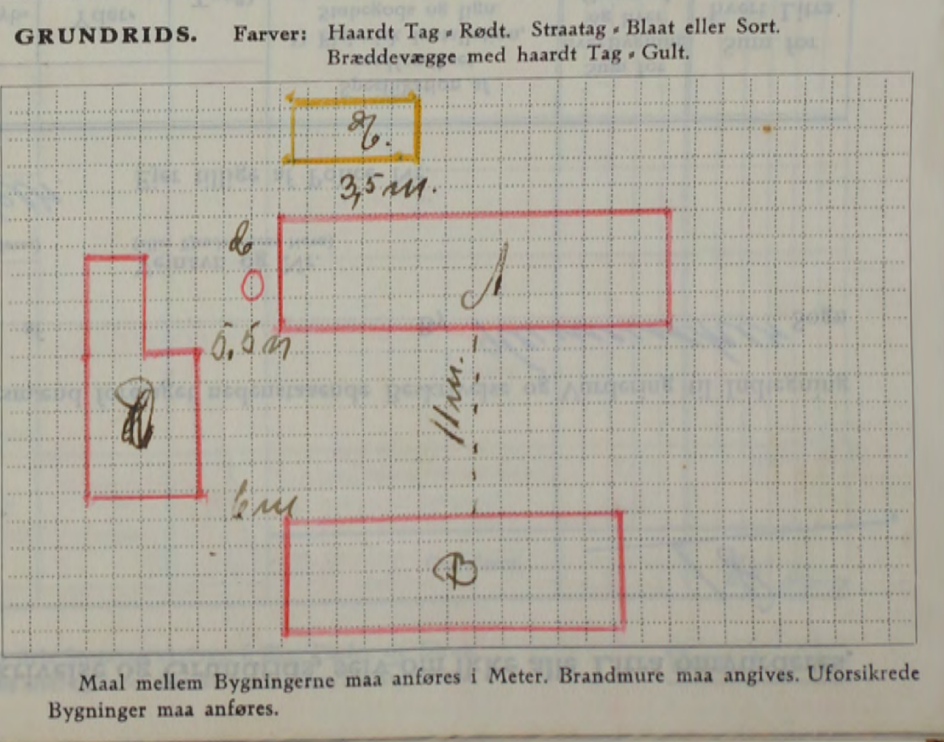 GRUNDRIDS. Farver: Haardt Tag = Rødt. Straatag = Blaat eller Sort.
Bræddevægge med haardt Tag = Gult.
3,5 m.
A
5,5 m
11 m.
6 m
B
Maal mellem Bygningerne maa anføres i Meter. Brandmure maa angives. Uforsikrede
Bygninger maa anføres.